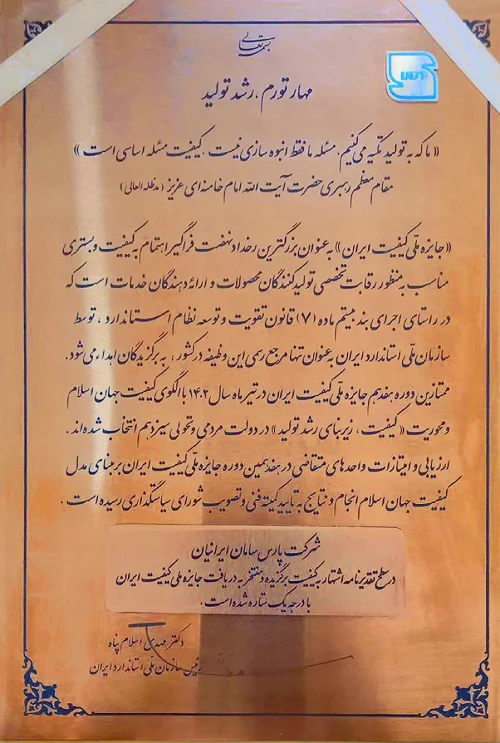 بسمه تعالی
مهار تورم، رشد تولید
« ما که به تولید تکیه می‌کنیم، مسئله ما فقط انبوه سازی نیست، کیفیت مسئله اساسی است »
مقام معظم رهبری حضرت آیت الله امام خامنه‌ای عزیز (مدظله العالی)
«جایزه ملّی کیفیت ایران» به عنوان بزرگترین رخداد نهضت فراگیر اهتمام به کیفیت و بستری
مناسب به منظور رقابت تخصصی تولیدکنندگان محصولات و ارائه دهندگان خدمات است که
در راستای اجرای بند بیستم ماده (۷) قانون تقویت و توسعه نظام استاندارد، توسط
سازمان ملّی استاندارد ایران به عنوان تنها مرجع رسمی این وظیفه در کشور، به برگزیدگان اهداء می‌شود.
ممتازین دوره هفدهم جایزه ملّی کیفیت ایران در تیرماه سال ۱۴۰۲ با الگوی کیفیت جهان اسلام
و محوریت « کیفیت، زیربنای رشد تولید » در دولت مردمی و تحولی سیزدهم انتخاب شده‌اند.
ارزیابی و امتیازات واحدهای متقاضی در هفدهمین دوره جایزه ملّی کیفیت ایران بر مبنای مدل
کیفیت جهان اسلام انجام و نتایج به تایید کمیته فنی و تصویب شورای سیاستگذاری رسیده است.
شرکت پارس سامان ایرانیان
در سطح تقدیرنامه اشتهار به کیفیت برگزیده و مفتخر به دریافت جایزه ملی کیفیت ایران
با درجه یک ستاره شده است.
دکتر مهدی اسلام پناه
رئیس سازمان ملّی استاندارد ایران